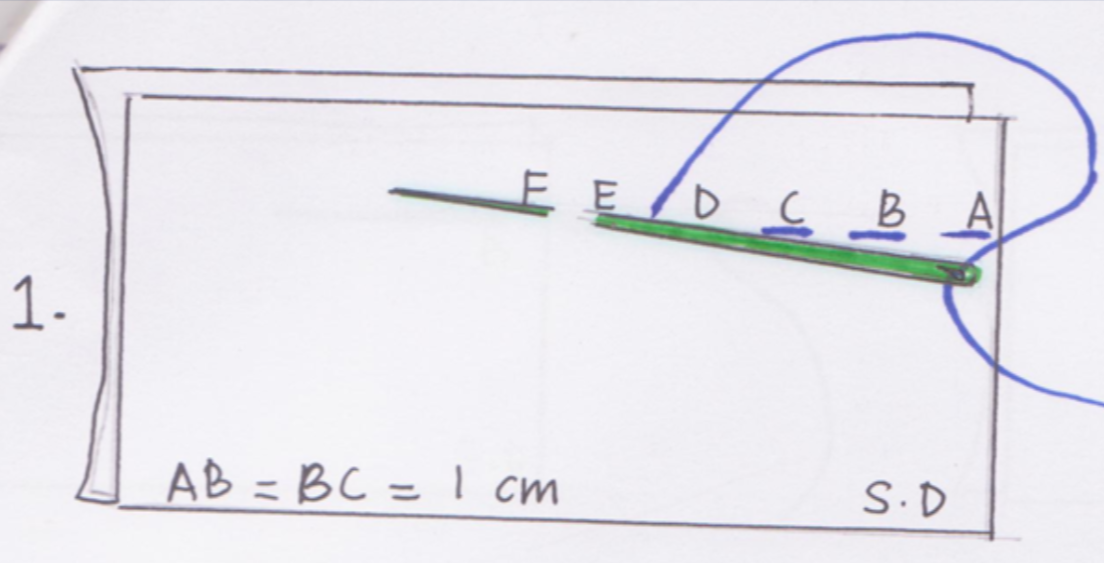 1.
F E D C B A
AB = BC = 1 cm
S.D